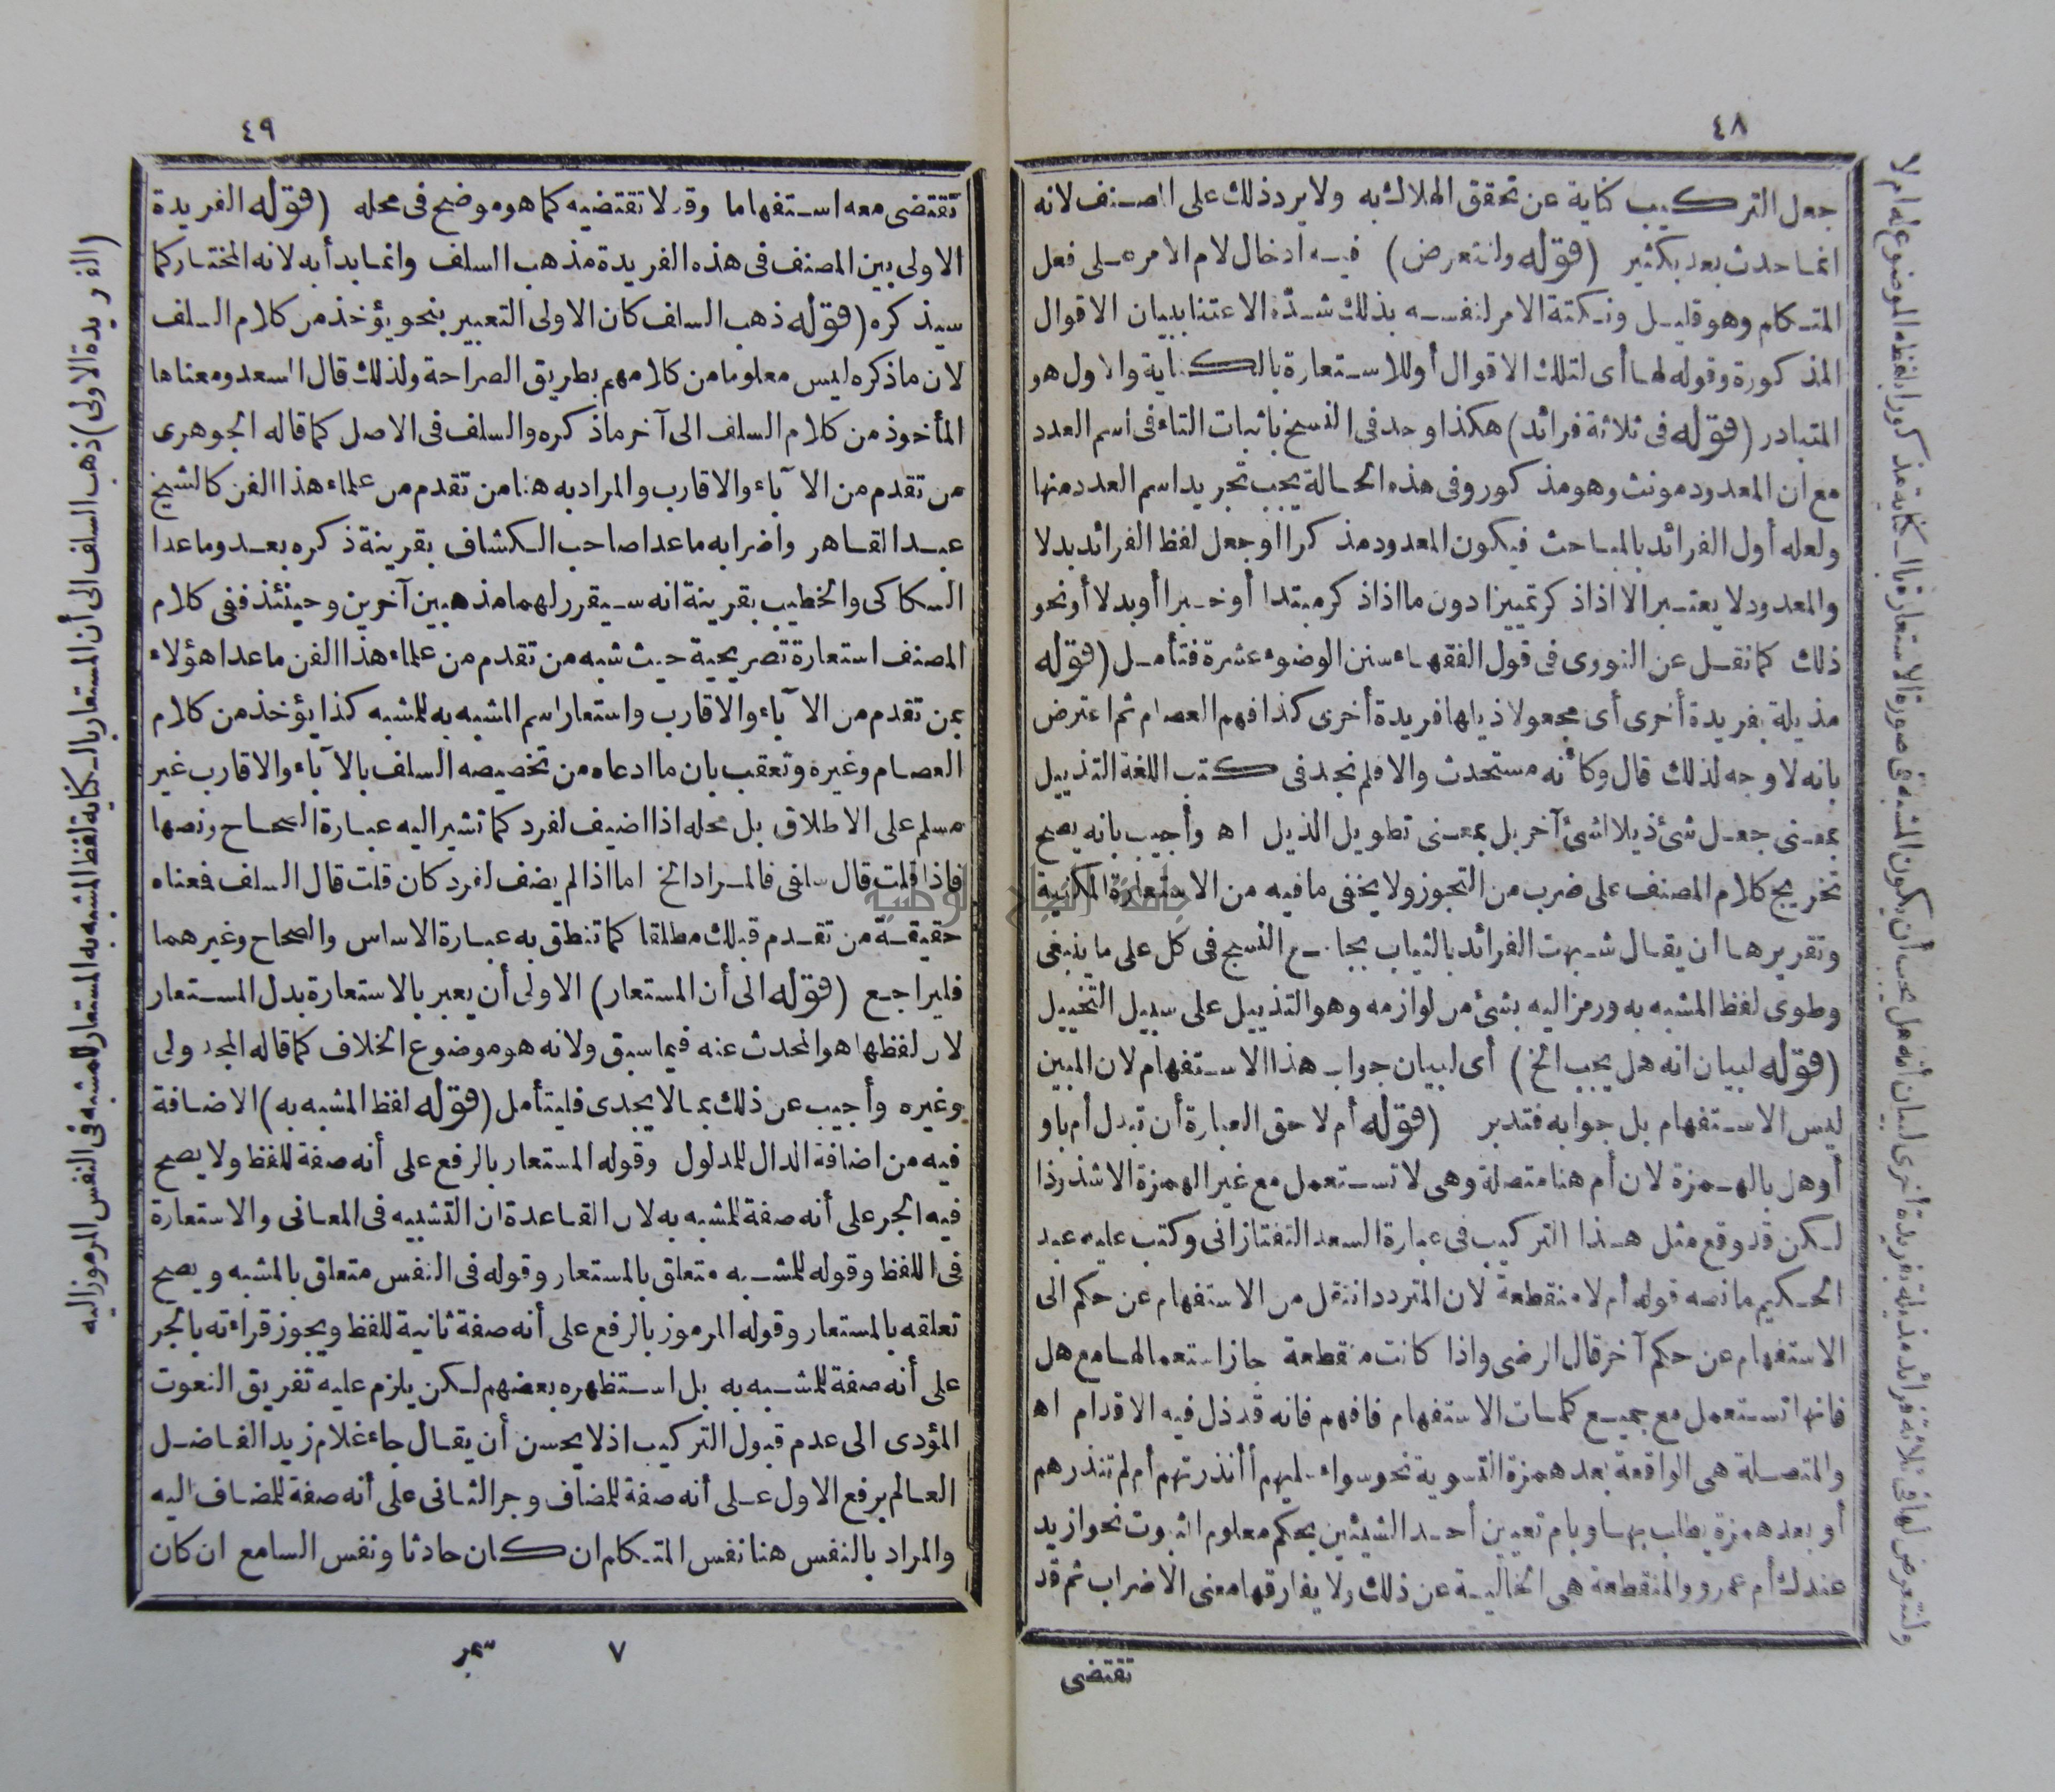 ٤٨
جعل التركيب كناية عن تحقق الهلاك به ولا يرد ذلك على المصنف لانه
انما حدث بعد بكثير (قوله ولنتعرض) فيه ادخال لام الامر على فعل
المتكلم وهو قليل ونكتة الامر لنفسه بذلك شدّة الاعتنا ببيان الاقوال
المذكورة وقوله لها أى لتلك الاقوال أوللاستعارة بالكناية والاول هو
المتبادر (قوله فى ثلاثة فرائد) هكذا وجد فى النسخ باثبات التاء فى اسم العدد
مع ان المعدود مونث وهو مذكور وفى هذه الحالة يجب تجريد اسم العدد منها
ولعله أول الفرائد بالمباحث فيكون المعدود مذكرا أو جعل لفظ الفرائد بدلا
والمعدود لا يعتبر الا اذا ذكر تمييزا دون ما اذا ذكر مبتدا أو خبرا أو بدلا أو نحو
ذلك كما نقل عن النووى فى قول الفقهاء سنن الوضوء عشرة فتأمل (قوله
مذيلة بفريدة أخرى أى مجعولا ذيلها فريدة أخرى كذا فهم العصام ثم اعترض
بانه لا وجه لذلك قال وكأنه مستحدث والا فلم نجد فى كتب اللغة التذييل
بمعنى جعل شئ ذيلا لشئ آخر بل بمعنى تطويل الذيل اه وأجيب بانه يصح
تخريج كلام المصنف على ضرب من التجوز ولا يخفى ما فيه من الاستعارة المكنية
وتقريرها ان يقال شبهت الفرائد بالثياب بجامع النسج فى كل على ما ينبغى
وطوى لفظ المشبه به ورمز اليه بشئ من لوازمه وهو التذييل على سبيل التخييل
(قوله لبيان انه هل يجب الخ) أى لبيان جواب هذا الاستفهام لان المبين
ليس الاستفهام بل جوابه فتدبر (قوله أم لا حق العبارة أن تبدل أم باو
أو هل بالهمزة لان أم هنا متصلة وهى لا تستعمل مع غير الهمزة الا شذوذا
لكن قد وقع مثل هذا التركيب فى عبارة السعد التفتازانى وكتب عليه عبد
الحكيم ما نصه قوله أم لا منقطعة لان المتردد انتقل من الاستفهام عن حكم الى
الاستفهام عن حكم آخر قال الرضى واذا كانت منقطعة جاز استعمالها مع هل
فانها تستعمل مع جميع كلمات الاستفهام فافهم فانه قد ذل فيه الاقدام اه
والمتصلة هى الواقعة بعد همزة التسوية نحو سواء عليهم أأنذرتهم أم لم تنذرهم
أو بعد همزة يطلب بها وبام تعيين أحد الشيئين بحكم معلوم الثبوت نحو ازيد
عندك أم عمرو والمنقطعة هى الخالية عن ذلك ولا يفارقها معنى الاضراب ثم قد
تقتضى
ولنتعرض لها فى ثلاثة فرائد مذيلة بفريدة أخرى لبيان أنه هل يجب أن يكون المشبه فى صورة الاستعارة بالكناية مذكورا بلفظه الموضوع له أم لا
٤٩
تقتضى معه استفهاما وقد لا تقتضيه كما هو موضح فى محله (قوله الفريدة
الاولى بين المصنف فى هذه الفريدة مذهب السلف وانما بدأ به لانه المختار كما
سيذكره (قوله ذهب السلف كان الاولى التعبير بنحو يؤخذ من كلام السلف
لان ما ذكره ليس معلوما من كلامهم بطريق الصراحة ولذلك قال السعد ومعناها
المأخوذ من كلام السلف الى آخر ما ذكره والسلف فى الاصل كما قاله الجوهرى
من تقدم من الآباء والاقارب والمراد به هنا من تقدم من علماء هذا الفن كالشيخ
عبد القاهر واضرابه ما عدا صاحب الكشاف بقرينة ذكره بعد وما عدا
السكاكى والخطيب بقرينة انه سيقرر لهما مذهبين آخرين وحينئذ ففى كلام
المصنف استعارة تصريحية حيث شبه من تقدم من علماء هذا الفن ما عدا هؤلاء
بمن تقدم من الآباء والاقارب واستعار اسم المشبه به للمشبه كذا يؤخذ من كلام
العصام وغيره وتعقب بان ما ادعاه من تخصيصه السلف بالآباء والاقارب غير
مسلم على الاطلاق بل محله اذا اضيف لفرد كما تشير اليه عبارة الصحاح ونصها
فاذا قلت قال سلفى فالمراد الخ اما اذا لم يضف لفرد كان قلت قال السلف فمعناه
حقيقة من تقدم قبلك مطلقا كما تنطق به عبارة الاساس والصحاح وغيرهما
فليراجع (قوله الى أن المستعار) الاولى أن يعبر بالاستعارة بدل المستعار
لان لفظها هو المحدث عنه فيما سبق ولانه هو موضوع الخلاف كما قاله المجدولى
وغيره وأجيب عن ذلك بما لا يجدى فليتأمل (قوله لفظ المشبه به) الاضافة
فيه من اضافة الدال للمدلول وقوله المستعار بالرفع على أنه صفة للفظ ولا يصح
فيه الجر على أنه صفة للمشبه به لان القاعدة ان التشبيه فى المعانى والاستعارة
فى اللفظ وقوله للمشبه متعلق بالمستعار وقوله فى النفس متعلق بالمشبه ويصح
تعلقه بالمستعار وقوله المرموز بالرفع على أنه صفة ثانية للفظ ويجوز قراءته بالجر
على أنه صفة للمشبه به بل استظهره بعضهم لكن يلزم عليه تفريق النعوت
المؤدى الى عدم قبول التركيب اذ لا يحسن أن يقال جاء غلام زيد الفاضل
العالم برفع الاول على أنه صفة للمضاف وجر الثانى على أنه صفة للمضاف اليه
والمراد بالنفس هنا نفس المتكلم ان كان حادثا ونفس السامع ان كان
٧ سمر
(الفريدة الاولى) ذهب السلف الى أن المستعار بالكناية لفظ المشبه به المستعار للمشبه فى النفس المرموز اليه
جامعة النجاح الوطنية